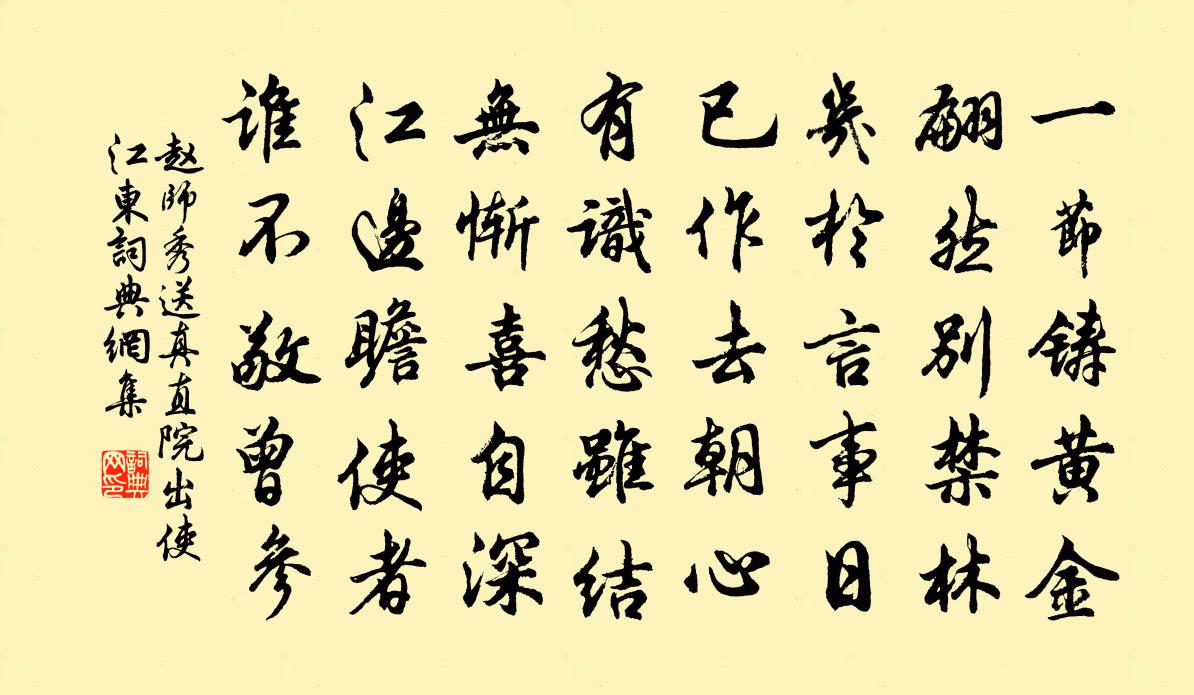 一節鑄黃金
翩然別禁林
幾於言事日
已作去朝心
有識愁雖結
無慚喜自深
江邊瞻使者
誰不敬曾參
趙師秀送真直院出使
江東詞典網集
詞典網印